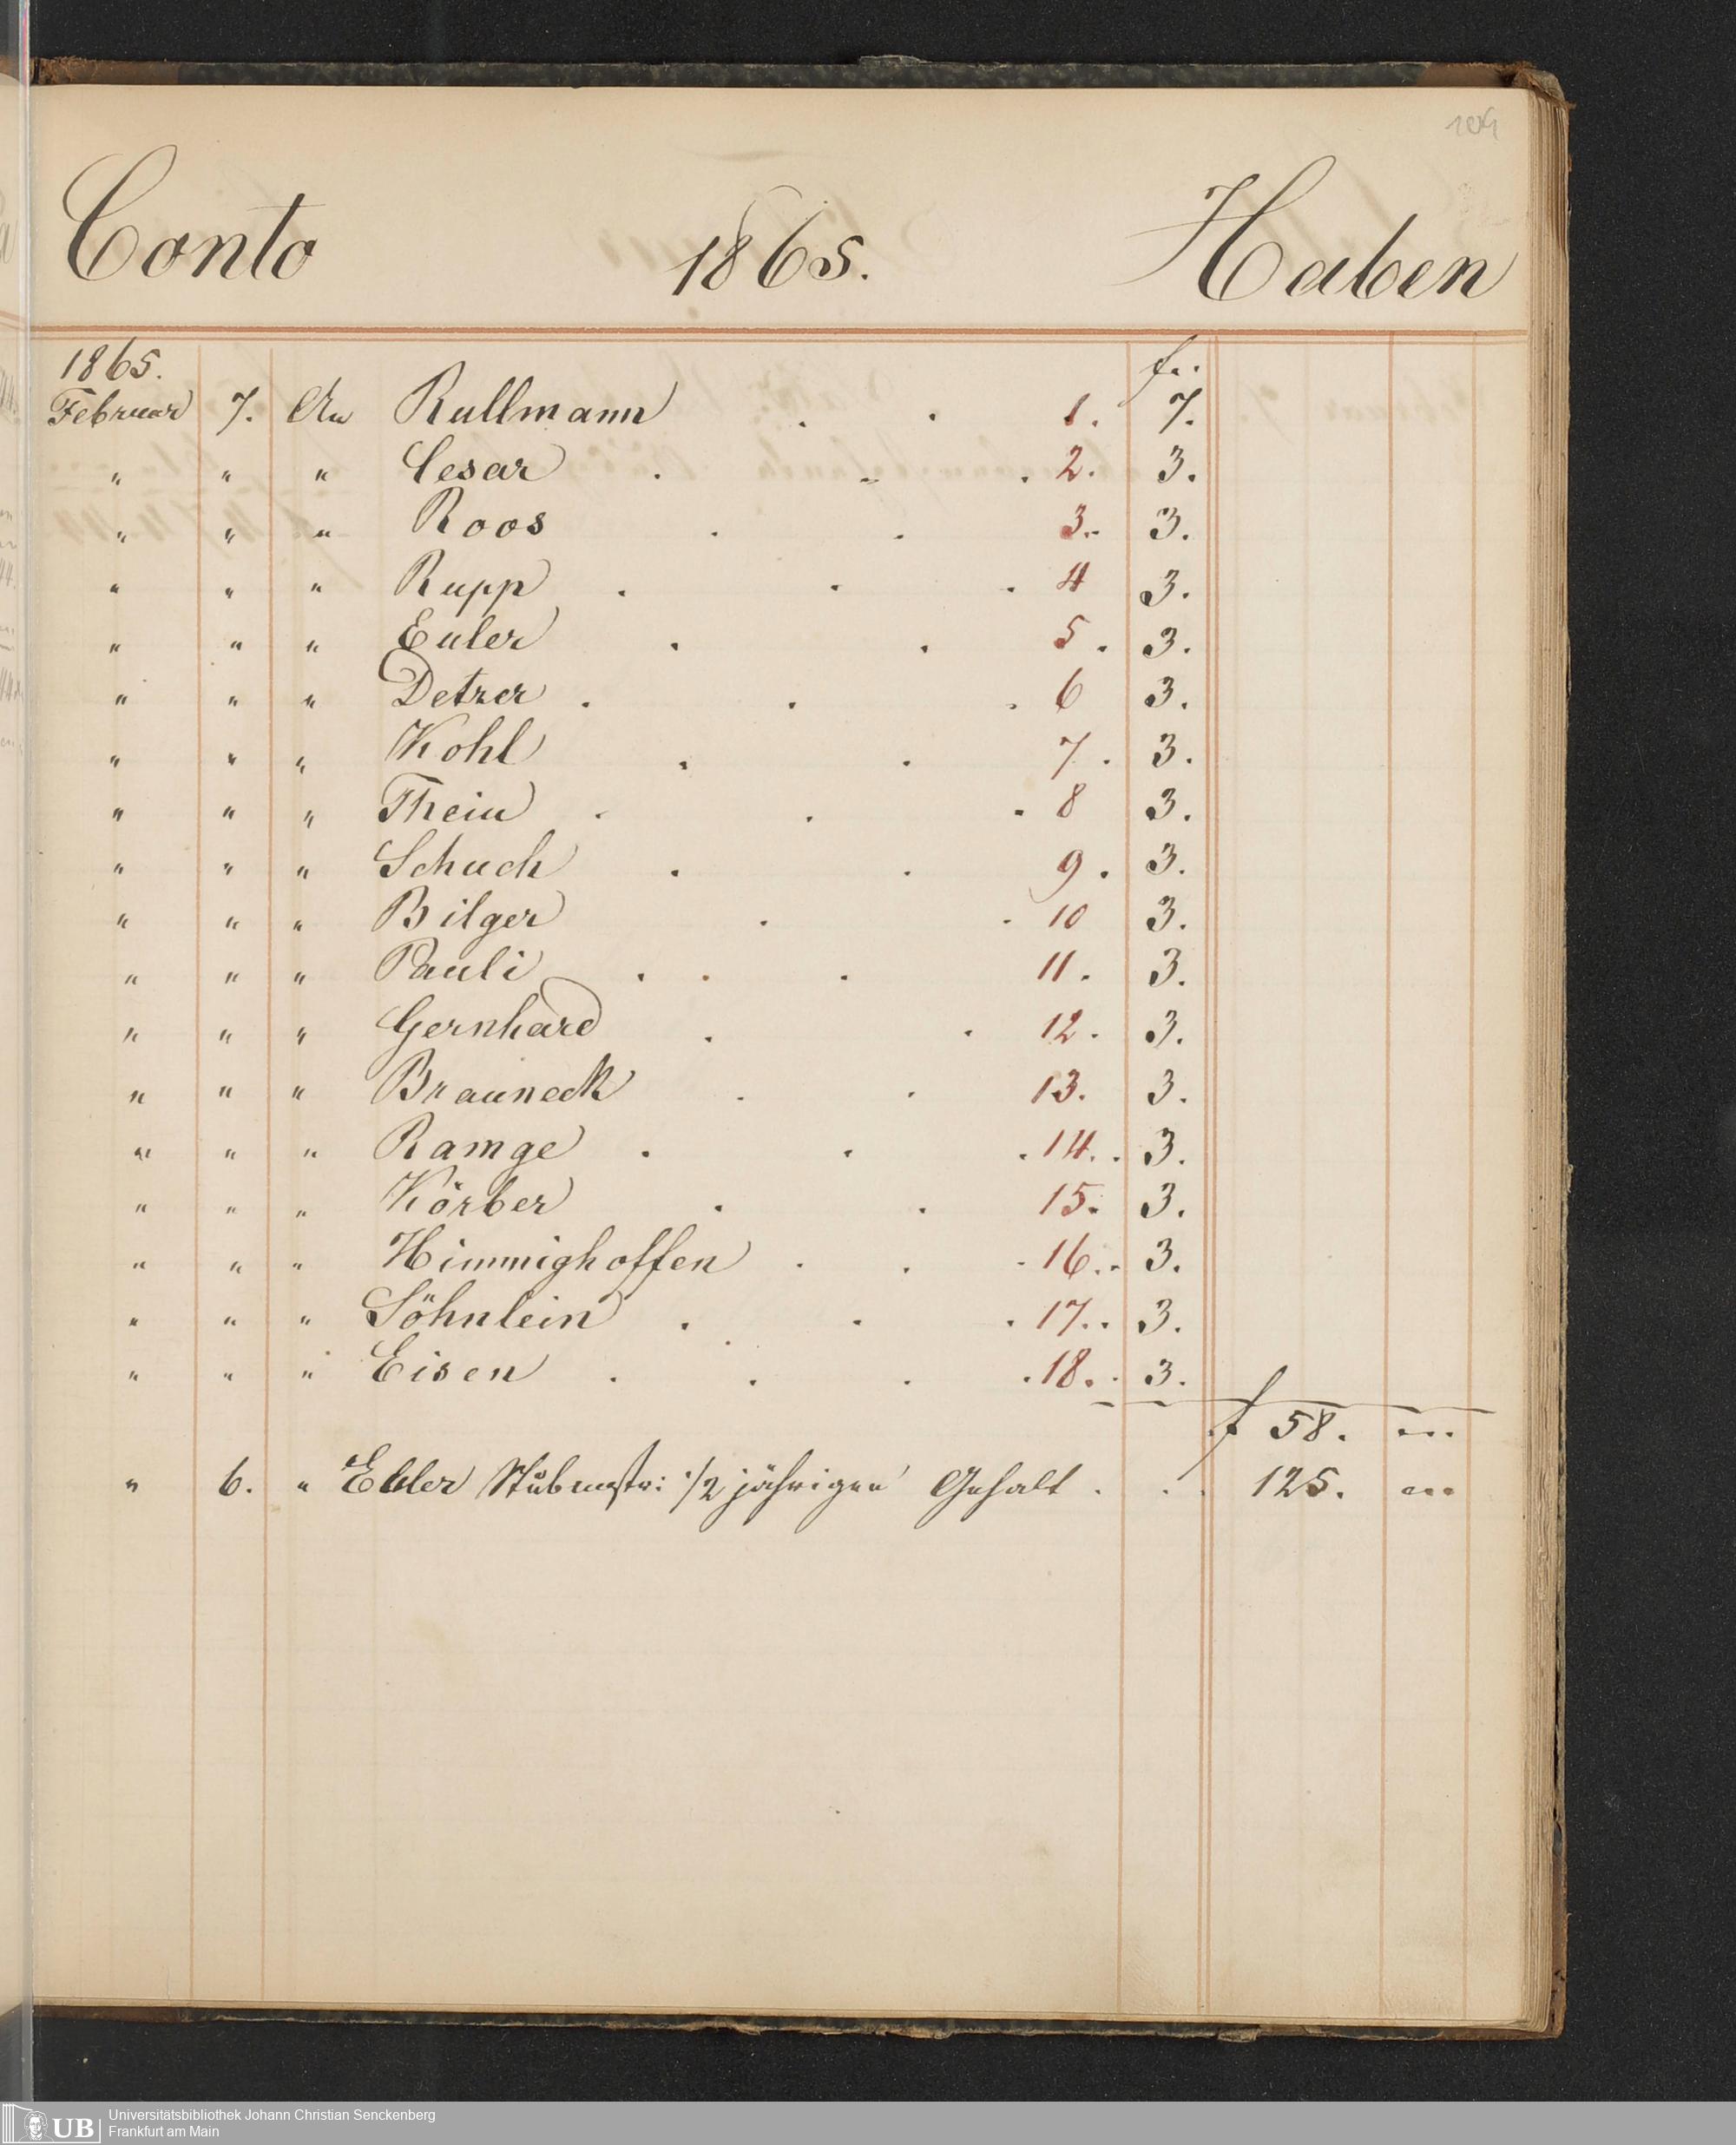 104
Conto 1865. Haben
1865. f..
Februar 7. An Rullmann . . 1. 7.
" " " Cesar . . . 2. 3.
" " " Roos . . 3. 3.
" " " Rupp . . . 4 3.
" " " Euler . . 5. 3.
" " " Detzer . . . 6 3.
" " " Kohl . . 7. 3.
" " " Thein . . . 8 3.
" " " Schuch . . 9. 3.
" " " Bilger . . 10 3.
" " " Pauli . . . 11. 3.
" " " Gernhard . . 12. 3.
" " " Brauneck . . 13. 3.
" " " Ramge . . . 14. . 3.
" " " Körber . . 15. 3.
" " " Himmighoffen . . . 16. . 3.
" " " Söhnlein . . . 17. . 3.
" " " Eisen . . . . 18. . 3.
f 58. "
" 6. " Edler 1/2 jährigen Gehalt . . . 125. "
Universitätsbibliothek Johann Christian Senckenberg
UB Frankfurt am Main